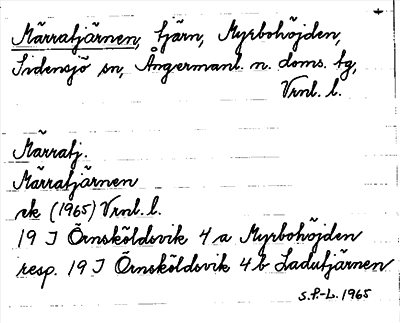 Märratjärnen, tjärn, Myrbohöjden,
Sidensjö sn, Ångermanl. n. doms. tg,
Vrnl. l.
Märratj.
Märratjärnen
ek (1965) Vrnl. l.
19 J Örnsköldsvik 4 a Myrbohöjden
resp. 19 J Örnsköldsvik 4 b Ladutjärnen
S.P.-L. 1965